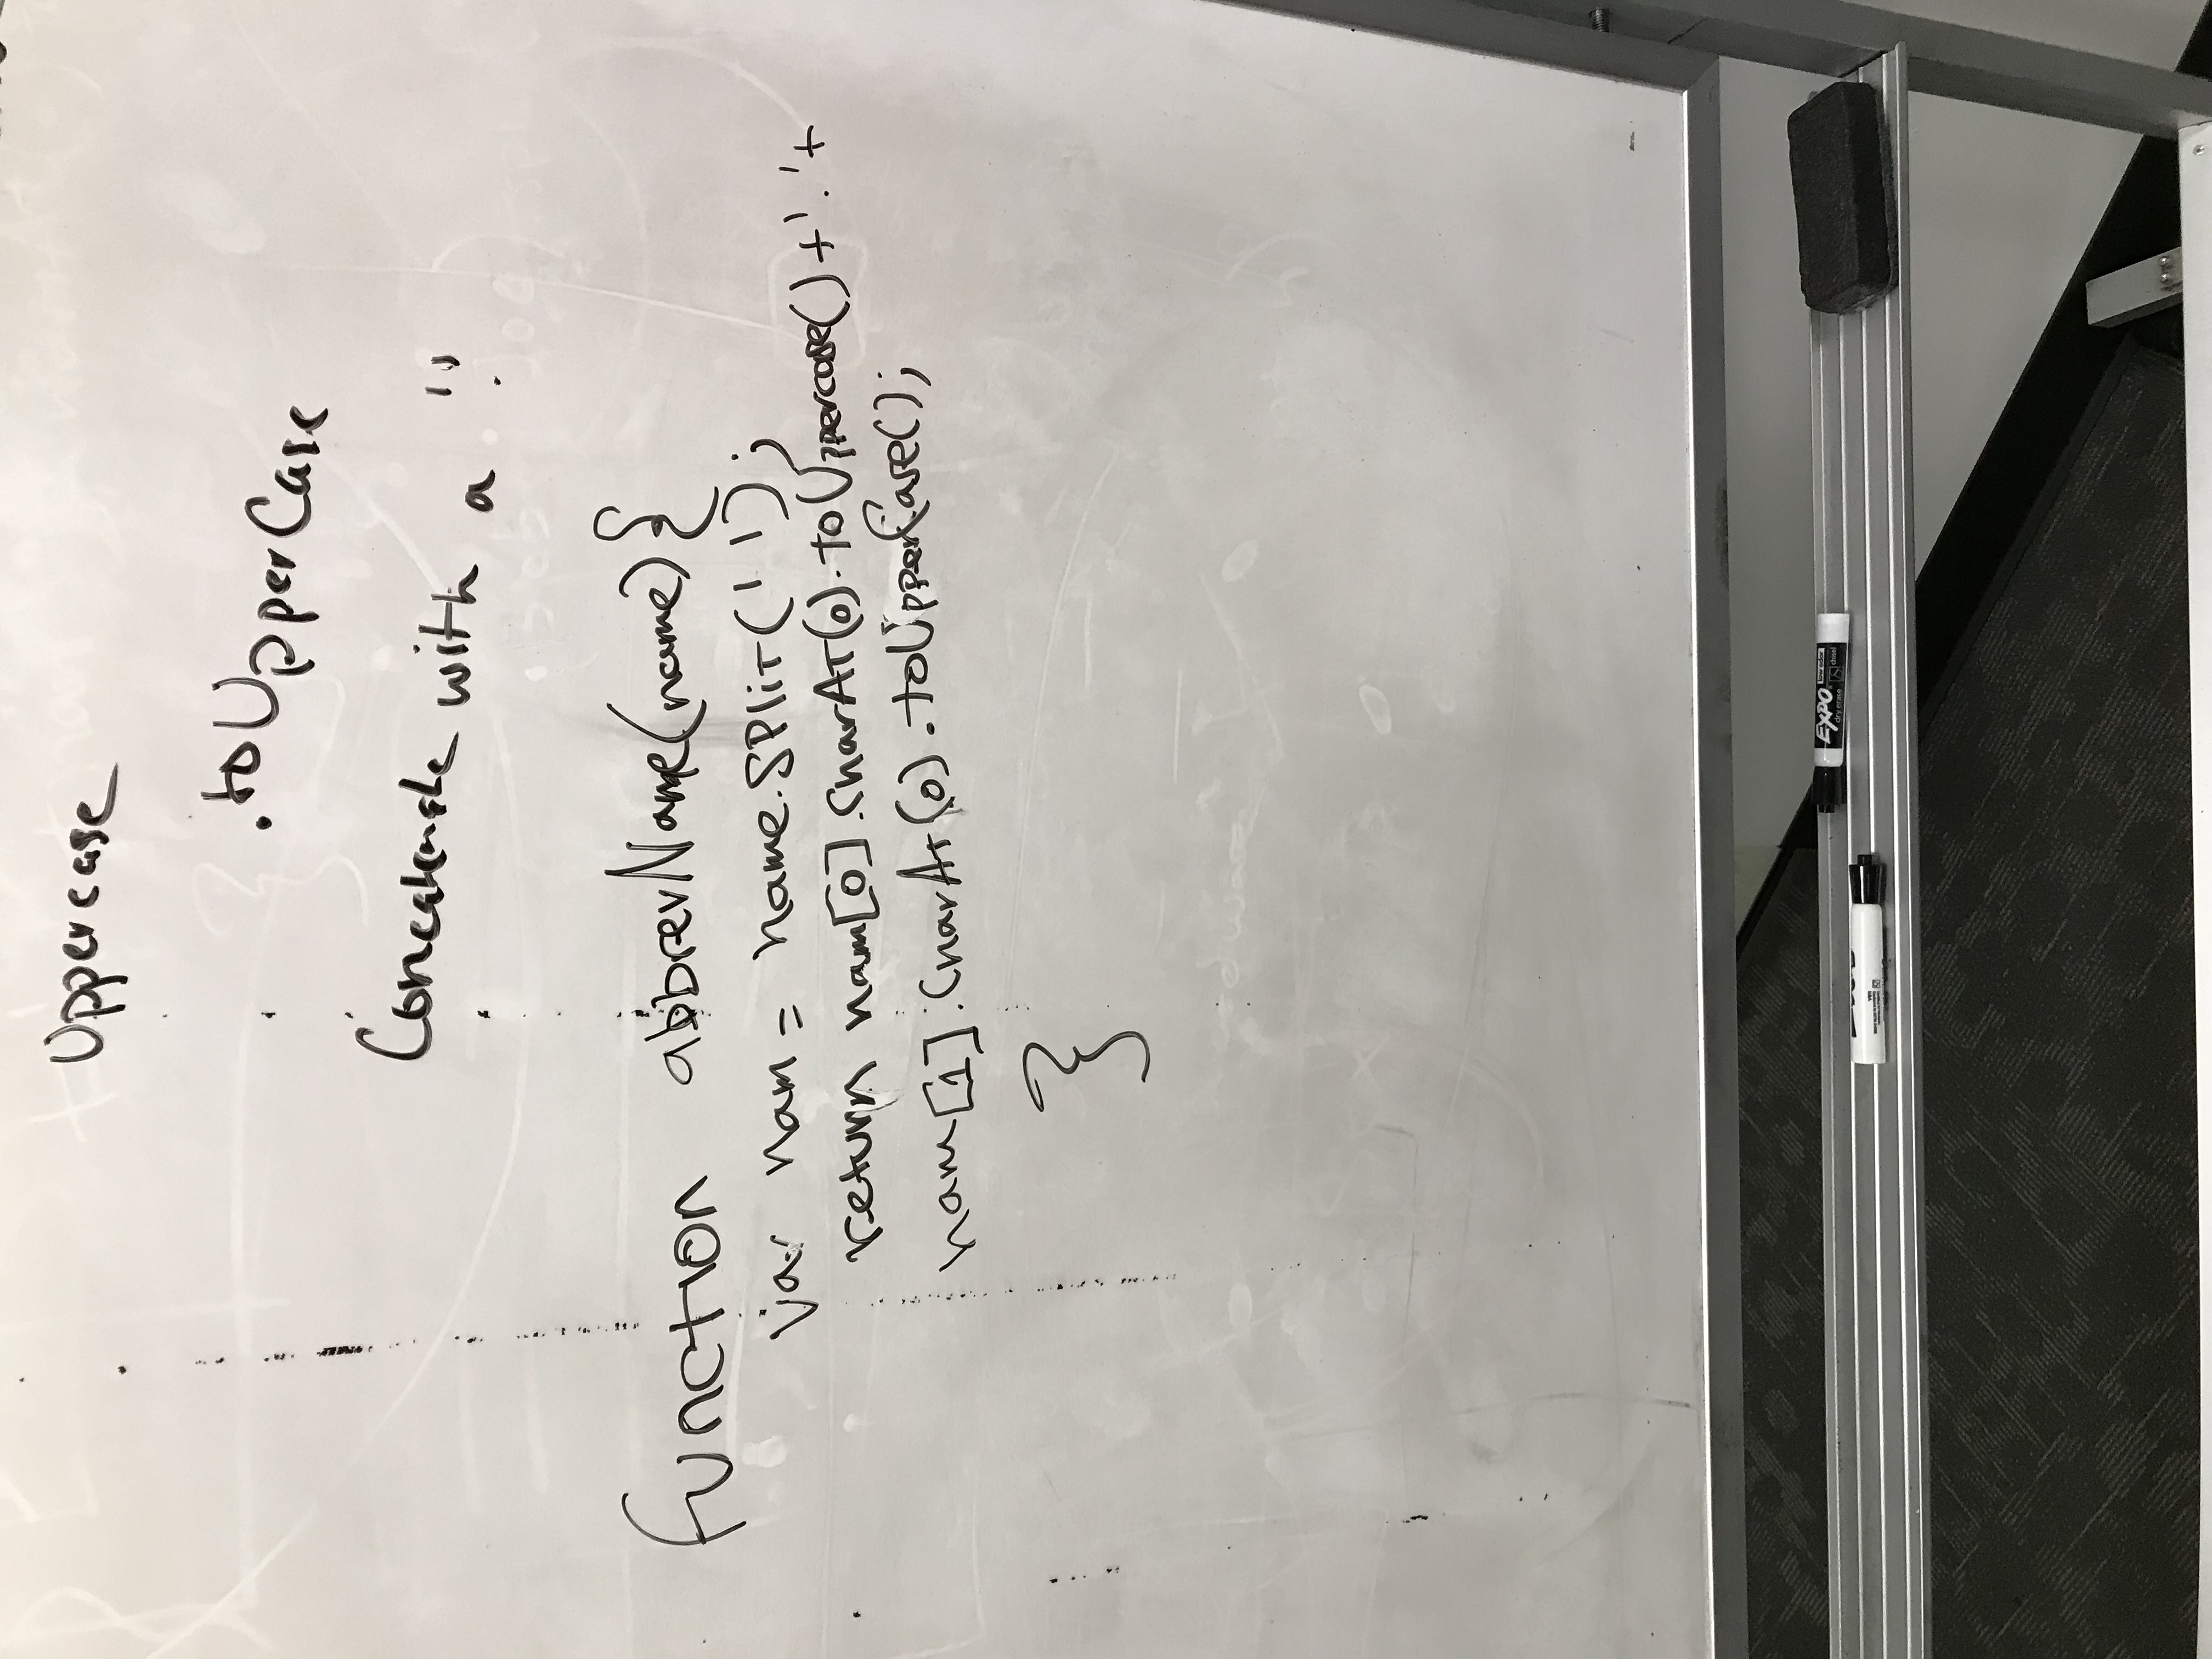 Uppercase
.toUpperCase
Concatenate with a '.'
function abbrevName(name){
var nam = name.split(' ');
return nam[0].charAt(0).toUppercase()+'.'+
nam[1].charAt(0).toUpperCase();
}
EXPO low odor
dry erase chisel